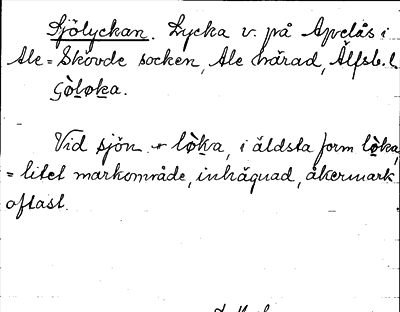 Sjölyckan. Lycka v. på Apelås i
Ale-Skövde socken, Ale härad, Älfsb. l.
Vid sjön + lò̠ka, i äldsta form lò̠ka,
= litet markområde, inhägnad, åkermark
oftast.